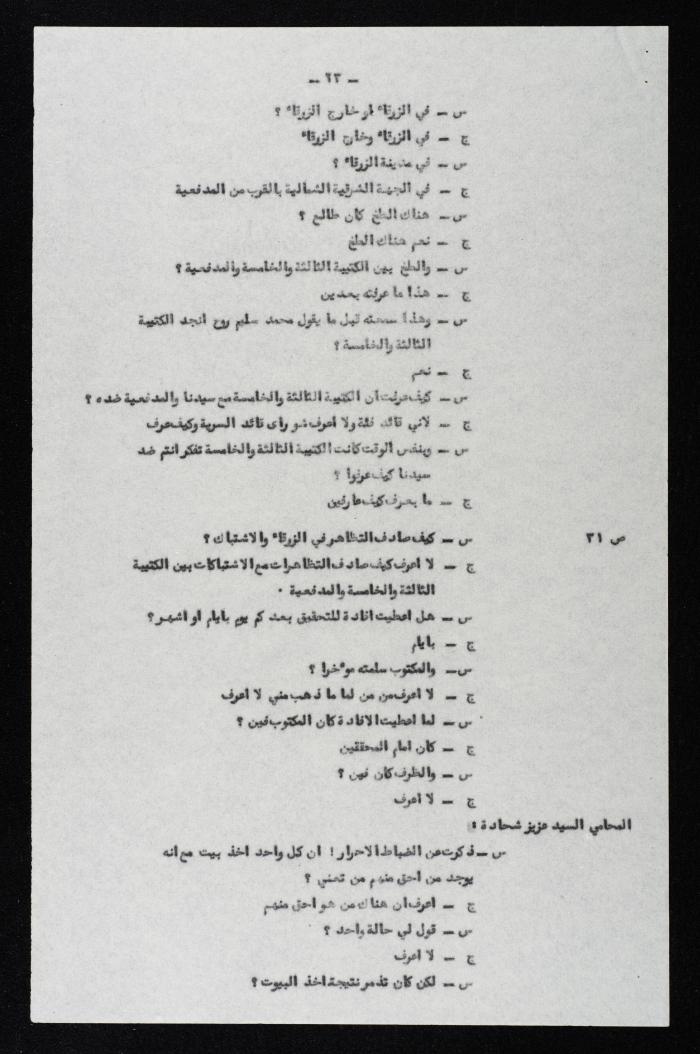 — ٦٣ —
س — في الزرقاء او خارج الزرقاء ؟
ج — في الزرقاء وخارج الزرقاء
س — في مدينة الزرقاء ؟
ج — في الجهة الشرقية الشمالية بالقرب من المدفعية
س — هناك الطخ كان طالع ؟
ج — نعم هناك الطخ
س — والطخ بين الكتيبة الثالثة والخامسة والمدفعية ؟
ج — هذا ما عرفته بعدين
س — وهذا سمعته قبل ما يقول محمد سليم روح انجد الكتيبة
الثالثة والخامسة ؟
ج — نعم
س — كيف عرفت ان الكتيبة الثالثة والخامسة مع سيدنا والمدفعية ضده ؟
ج — لاني قائد فئة ولا اعرف شو رأى قائد السرية وكيف عرف
س — وبنفس الوقت كانت الكتيبة الثالثة والخامسة تفكر انتم ضد
سيدنا كيف عرفوا ؟
ج — ما بعرف كيف عارفين
ص ٣١
س — كيف صادف التظاهر في الزرقاء والاشتباك ؟
ج — لا اعرف كيف صادف التظاهرات مع الاشتباكات بين الكتيبة
الثالثة والخامسة والمدفعية .
س — هل اعطيت افادة للتحقيق بعد كم يوم بايام او اشهر ؟
ج — بايام
س — والمكتوب سلمته موءخرا ؟
ج — لا اعرف من من لما ما ذهب مني لا اعرف
س — لما اعطيت الافادة كان المكتوب فين ؟
ج — كان امام المحققين
س — والظرف كان فين ؟
ج — لا اعرف
المحامي السيد عزيز شحادة :
س — ذكرت عن الضباط الاحرار ! ان كل واحد اخذ بيت مع انه
يوجد من احق منهم من تعني ؟
ج — اعرف ان هناك من هو احق منهم
س — قول لي حالة واحد ؟
ج — لا اعرف
س — لكن كان تذمر نتيجة اخذ البيوت ؟